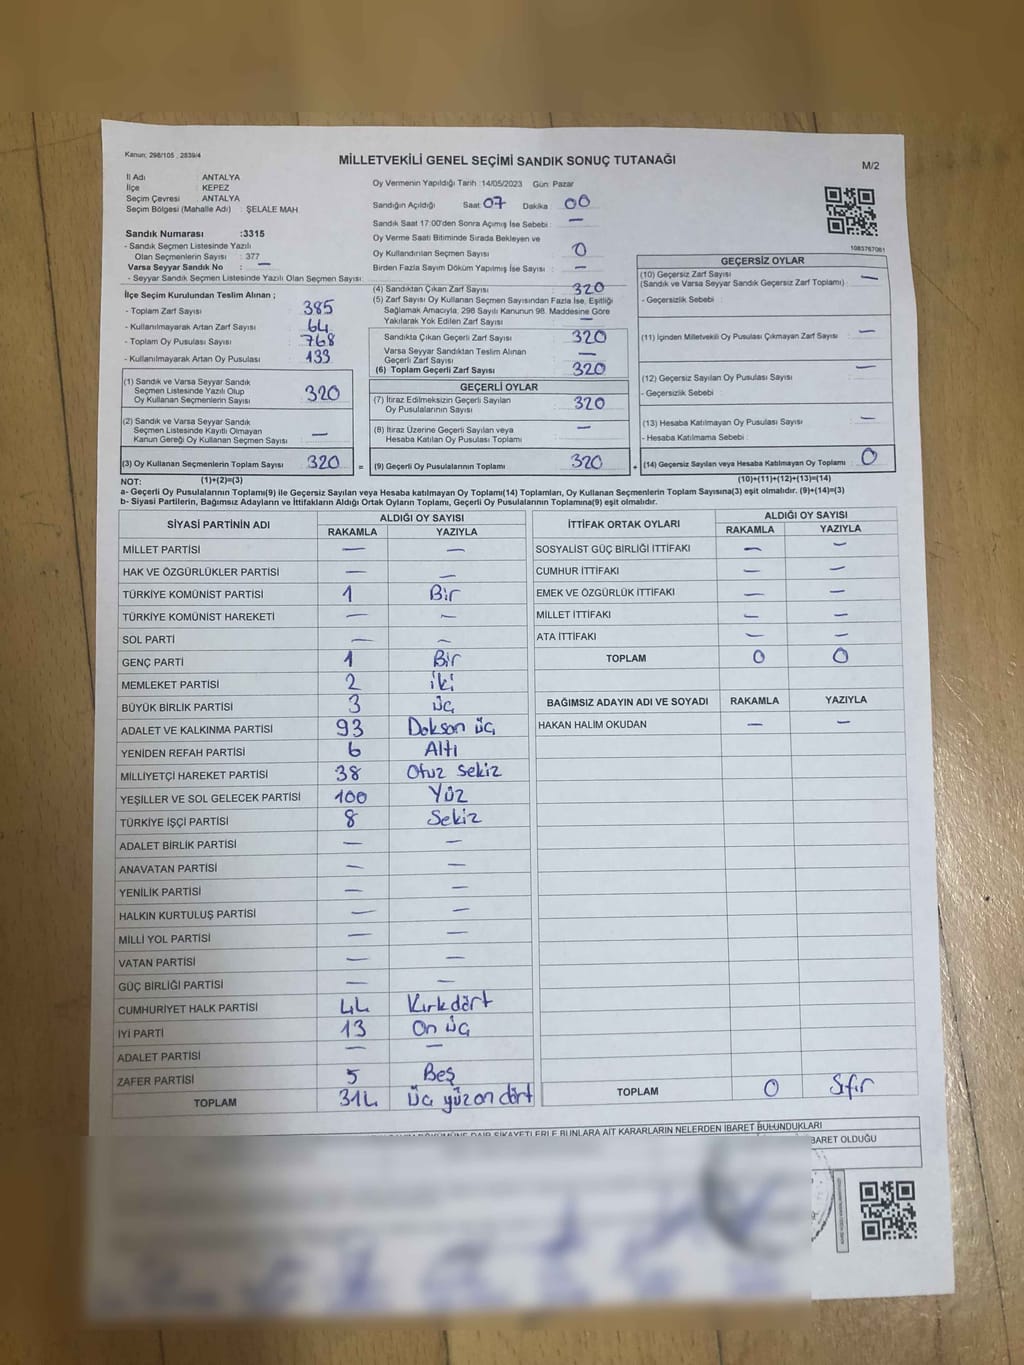 Kanun; 298/105 , 2839/4
MİLLETVEKİLİ GENEL SEÇİMİ SANDIK SONUÇ TUTANAĞI
M/2
İl Adı : ANTALYA
İlçe : KEPEZ
Seçim Çevresi : ANTALYA
Seçim Bölgesi (Mahalle Adı) : ŞELALE MAH
Sandık Numarası :3315
- Sandık Seçmen Listesinde Yazılı
Olan Seçmenlerin Sayısı : 377
Varsa Seyyar Sandık No : —
- Seyyar Sandık Seçmen Listesinde Yazılı Olan Seçmen Sayısı:
İlçe Seçim Kurulundan Teslim Alınan ;
- Toplam Zarf Sayısı : 385
- Kullanılmayarak Artan Zarf Sayısı : 64
- Toplam Oy Pusulası Sayısı : 768
- Kullanılmayarak Artan Oy Pusulası : 133
(1) Sandık ve Varsa Seyyar Sandık
Seçmen Listesinde Yazılı Olup
Oy Kullanan Seçmenlerin Sayısı 320
(2) Sandık ve Varsa Seyyar Sandık
Seçmen Listesinde Kayıtlı Olmayan
Kanun Gereği Oy Kullanan Seçmen Sayısı —
(3) Oy Kullanan Seçmenlerin Toplam Sayısı 320 =
Oy Vermenin Yapıldığı Tarih :14/05/2023 Gün: Pazar
Sandığın Açıldığı Saat 07 Dakika 00
Sandık Saat 17:00'den Sonra Açılmış İse Sebebi : —
Oy Verme Saati Bitiminde Sırada Bekleyen ve
Oy Kullandırılan Seçmen Sayısı : 0
Birden Fazla Sayım Döküm Yapılmış İse Sayısı : —
(4) Sandıktan Çıkan Zarf Sayısı : 320
(5) Zarf Sayısı Oy Kullanan Seçmen Sayısından Fazla İse, Eşitliği
Sağlamak Amacıyla; 298 Sayılı Kanunun 98. Maddesine Göre
Yakılarak Yok Edilen Zarf Sayısı : —
Sandıkta Çıkan Geçerli Zarf Sayısı : 320
Varsa Seyyar Sandıktan Teslim Alınan
Geçerli Zarf Sayısı : —
(6) Toplam Geçerli Zarf Sayısı : 320
GEÇERLİ OYLAR
(7) İtiraz Edilmeksizin Geçerli Sayılan
Oy Pusulalarının Sayısı : 320
(8) İtiraz Üzerine Geçerli Sayılan veya
Hesaba Katılan Oy Pusulası Toplamı : —
(9) Geçerli Oy Pusulalarının Toplamı 320 +
1083767061
GEÇERSİZ OYLAR
(10) Geçersiz Zarf Sayısı —
(Sandık ve Varsa Seyyar Sandık Geçersiz Zarf Toplamı) :
- Geçersizlik Sebebi :
(11) İçinden Milletvekili Oy Pusulası Çıkmayan Zarf Sayısı : —
(12) Geçersiz Sayılan Oy Pusulası Sayısı : —
- Geçersizlik Sebebi :
(13) Hesaba Katılmayan Oy Pusulası Sayısı : —
- Hesaba Katılmama Sebebi :
(14) Geçersiz Sayılan veya Hesaba Katılmayan Oy Toplamı : 0
NOT: (1)+(2)=(3) (10)+(11)+(12)+(13)=(14)
a- Geçerli Oy Pusulalarının Toplamı(9) ile Geçersiz Sayılan veya Hesaba katılmayan Oy Toplamı(14) Toplamları, Oy Kullanan Seçmenlerin Toplam Sayısına(3) eşit olmalıdır. (9)+(14)=(3)
b- Siyasi Partilerin, Bağımsız Adayların ve İttifakların Aldığı Ortak Oyların Toplamı, Geçerli Oy Pusulalarının Toplamına(9) eşit olmalıdır.
SİYASİ PARTİNİN ADI ALDIĞI OY SAYISI
RAKAMLA YAZIYLA
MİLLET PARTİSİ — —
HAK VE ÖZGÜRLÜKLER PARTİSİ — —
TÜRKİYE KOMÜNİST PARTİSİ 1 Bir
TÜRKİYE KOMÜNİST HAREKETİ — —
SOL PARTİ — —
GENÇ PARTİ 1 Bir
MEMLEKET PARTİSİ 2 iki
BÜYÜK BİRLİK PARTİSİ 3 üç
ADALET VE KALKINMA PARTİSİ 93 Doksan üç
YENİDEN REFAH PARTİSİ 6 Altı
MİLLİYETÇİ HAREKET PARTİSİ 38 Otuz sekiz
YEŞİLLER VE SOL GELECEK PARTİSİ 100 Yüz
TÜRKİYE İŞÇİ PARTİSİ 8 Sekiz
ADALET BİRLİK PARTİSİ — —
ANAVATAN PARTİSİ — —
YENİLİK PARTİSİ — —
HALKIN KURTULUŞ PARTİSİ — —
MİLLİ YOL PARTİSİ — —
VATAN PARTİSİ — —
GÜÇ BİRLİĞİ PARTİSİ — —
CUMHURİYET HALK PARTİSİ 44 Kırk dört
İYİ PARTİ 13 On üç
ADALET PARTİSİ — —
ZAFER PARTİSİ 5 Beş
TOPLAM 314 üç yüz on dört
İTTİFAK ORTAK OYLARI ALDIĞI OY SAYISI
RAKAMLA YAZIYLA
SOSYALİST GÜÇ BİRLİĞİ İTTİFAKI — —
CUMHUR İTTİFAKI — —
EMEK VE ÖZGÜRLÜK İTTİFAKI — —
MİLLET İTTİFAKI — —
ATA İTTİFAKI — —
TOPLAM 0 0
BAĞIMSIZ ADAYIN ADI VE SOYADI RAKAMLA YAZIYLA
HAKAN HALİM OKUDAN — —
TOPLAM 0 Sıfır
ŞİKAYETLERLE BUNLARA AİT KARARLARIN NELERDEN İBARET BULUNDUKLARI
BARET OLDUĞU